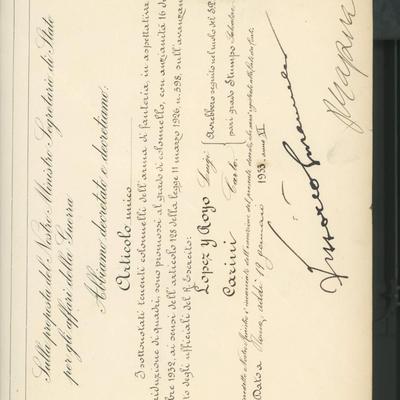 Sulla proposta del Nostro Ministro Segretario di Stato
per gli affari della Guerra
Abbiamo decretato e decretiamo:
Articolo unico
I sottonotati tenenti colonnelli dell'arma di fanteria, in aspettativa
riduzione di quadri, sono promossi al grado di colonnello, con anzianità 16 di
bre 1932, ai sensi dell'articolo 128 della legge 11 marzo 1926, n. 398, sull'avanzam
to degli ufficiali del R. Esercito:
Lopez y Royo Luigi
Carini Carlo
Avrebbero seguito nel ruolo del S.P.
pari grado Stumpo Salvatore.
Ministro è incaricato dell'esecuzione del presente decreto, che sarà registrato alla Corte dei Conti.
Dato a Roma, addì 19 gennaio 1933 anno XI
Vittorio Emanuele